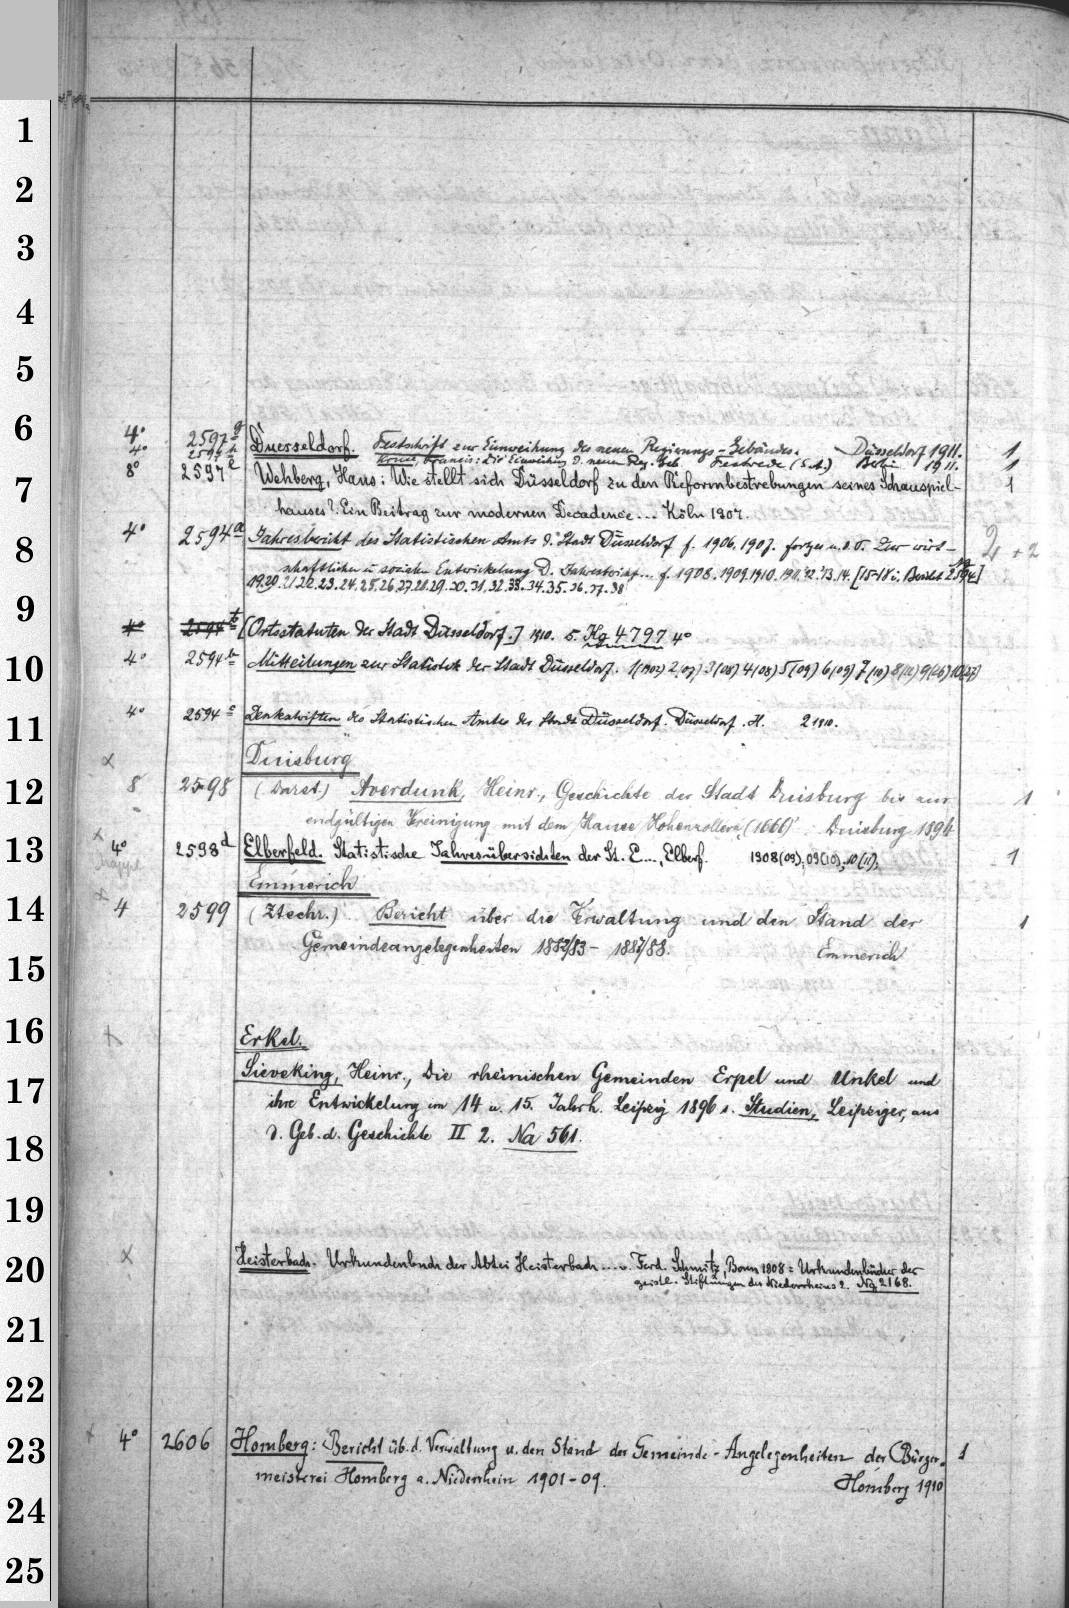 1
2
3
4
5
6
4° 2597 g Duesseldorf. Festschrift zur Einweihung des neuen Regierungs-Gebäudes. Düsseldorf 1911. 1
4° 2597 h Kruse, Francis: Die Einweihung d. neuen Reg. Geb. Festrede (S.A.) Berlin 1911. 1
8° 2597 i Wehberg, Hans: Wie stellt sich Düsseldorf zu den Reformbestrebungen seines Schauspiel- 1
7
hauses? Ein Beitrag zur modernen Decadence... Köln 1907.
8
4° 2594 a Jahresbericht des Statistischen Amts d. Stadt Düsseldorf f. 1906. 1907. fortges. u. d. T. Zur wirt- 2 + 2
schaftlichen u sozialen Entwickelung D. Jahresbericht... f. 1908. 1909. 1910. 1911. 12. 13. 14. [15-18 i. Bericht 2594]
19.20.21.22.23.24.25.26.27.28.29.30.31.32.33.34.35.36.37.38
9
4° 2594 b [Ortsstatuten der Stadt Düsseldorf.] 1910. s. Kg 4797 4°
10
4° 2594 b Mitteilungen zur Statistik der Stadt Düsseldorf. 1(1902) 2(07) 3(08) 4(08) 5(09) 6(09) 7(10) 8(11) 9(26) 10(27)
4° 2594 c Denkschriften des Statistischen Amtes der Stadt Düsseldorf. Düsseldorf. H. 2 1910.
11
Duisburg
12
8 2598 (Darst.) Averdunk, Heinr., Geschichte der Stadt Duisburg bis zur 1
endgültigen Vereinigung mit dem Hause Hohenzollern (1666) Duisburg 1894
13
4° 2598 d Elberfeld. Statistische Jahresübersichten der St. E..., Elberf. 1908(09); 09(10); 10(11); 1
Kappe
Emmerich
14
4 2599 (Ztschr.) Bericht über die Verwaltung und den Stand der 1
Gemeindeangelegenheiten 1882/83 - 1887/88. Emmerich
15
16
Erkel.
17
Sieveking, Heinr., Die rheinischen Gemeinden Erpel und Unkel und
ihre Entwickelung im 14 u. 15. Jahrh. Leipzig 1896 s. Studien, Leipziger, aus
d. Geb. d. Geschichte II 2. Na 561.
18
19
20
Heisterbach. Urkundenbuch der Abtei Heisterbach .... v. Ferd. Schmitz, Bonn 1908 = Urkundenbücher der
geistl. Stiftungen des Niederrheins 2. Nq 2168.
21
22
23
4° 2606 Homberg: Bericht üb. d. Verwaltung u. den Stand der Gemeinde-Angelegenheiten der Bürger- 1
meisterei Homberg a. Niederrhein 1901-09. Homberg 1910
24
25